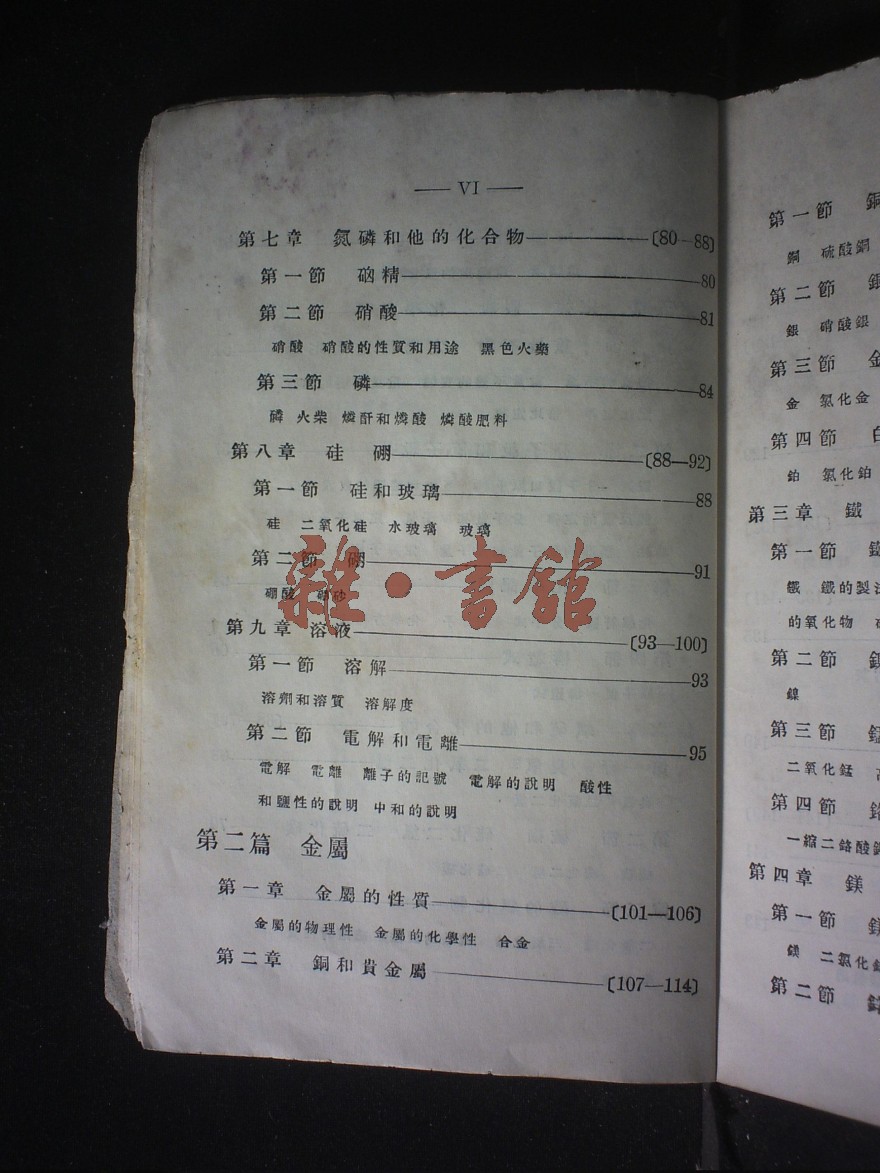 — VI —
第七章 氮磷和他的化合物———〔80—88〕
第一節 硇精———80
第二節 硝酸———81
硝酸 硝酸的性質和用途 黑色火藥
第三節 磷———84
磷 火柴 燐酐和燐酸 燐酸肥料
第八章 硅 硼———〔88—92〕
第一節 硅和玻璃———88
硅 二氧化硅 水玻璃 玻璃
第二節 硼———91
硼酸 硼砂
雜·書館
第九章 溶液———〔93—100〕
第一節 溶解———93
溶劑和溶質 溶解度
第二節 電解和電離———95
電解 電離 離子的記號 電解的說明 酸性
和鹽性的說明 中和的說明
第二篇 金屬
第一章 金屬的性質———〔101—106〕
金屬的物理性 金屬的化學性 合金
第二章 銅和貴金屬———〔107—114〕
第一節 銅
銅 硫酸銅
第二節 銀
銀 硝酸銀
第三節 金
金 氯化金
第四節
鉑 氯化鉑
第三章 鐵
第一節 鐵
鐵 鐵的製法
的氧化物
第二節 鎳
鎳
第三節 錳
二氧化錳
第四節 鉻
一縮二鉻酸
第四章 鎂
第一節 鎂
鎂 二氯化
第二節